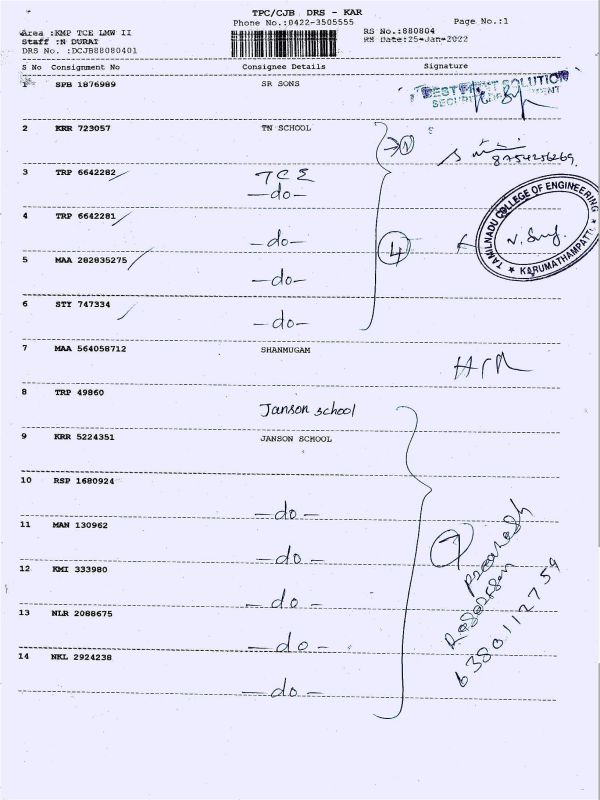 TPC/CJB DRS - KAR
Phone No.:0422-3505555
Page No.:1
Area :KMP TCE LMW II
RS No.:880804
Staff :N DURAI
RM Date:25-Jan-2022
DRS No. :DCJB88080401
S No Consignment No Consignee Details Signature
1 SPB 1876989 SR SONS
SOLUTION
2 KRR 723057 TN SCHOOL
8754256269
3 TRP 6642282 TCE
-do-
4 TRP 6642281
-do-
4
5 MAA 282835275
-do-
TAMILNADU COLLEGE OF ENGINEERING
KARUMATHAMPATTI
6 STY 747334
-do-
7 MAA 564058712 SHANMUGAM
8 TRP 49860
Janson school
9 KRR 5224351 JANSON SCHOOL
10 RSP 1680924
-do-
11 MAN 130962
-do-
7
12 KMI 333980
-do-
13 NLR 2088675
-do-
14 NKL 2924238
-do-
6380112759